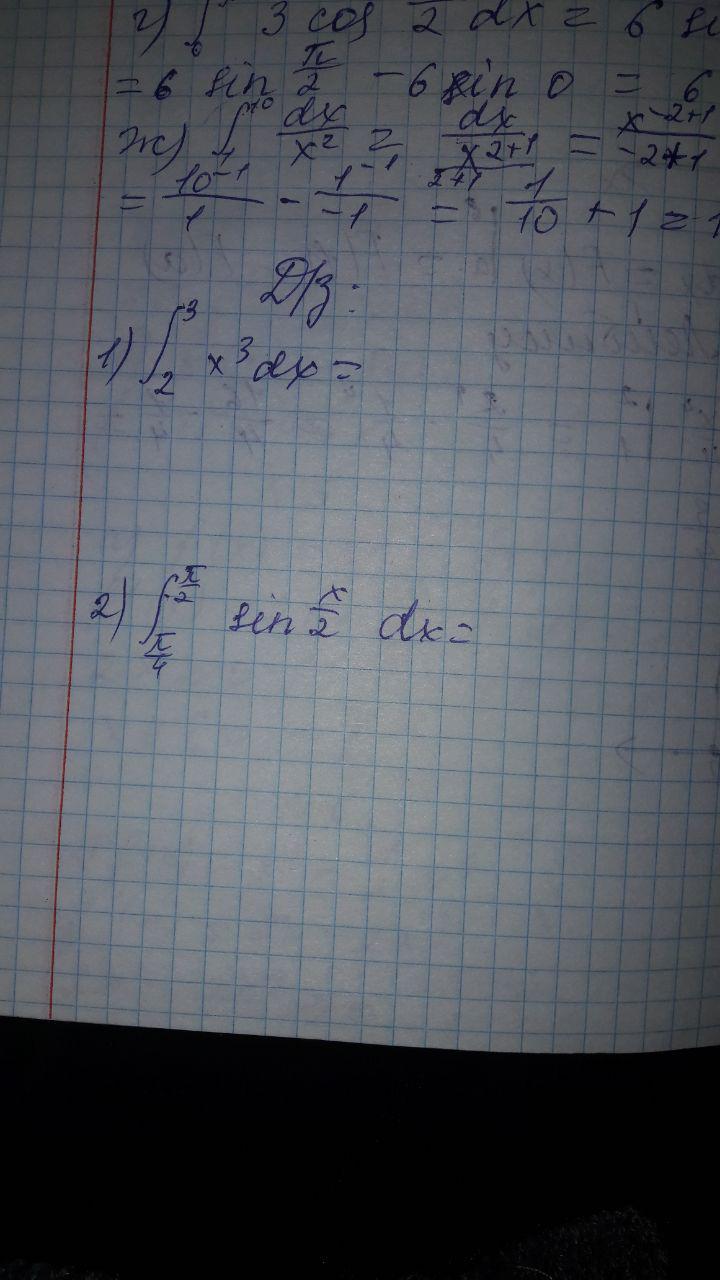 г) ∫ 3 cos 2 dx = 6
= 6 sin π/2 - 6 sin 0 = 6
ж) ∫₁¹⁰ dx/x² = dx/(x²⁺¹/2+1) = x⁻²⁺¹/-2+1
= 10⁻¹/1 - 1⁻¹/-1 = 1/10 + 1 =
Д/з:
1) ∫₂³ x³ dx =
2) ∫_{π/4}^{π/2} sin x/2 dx =